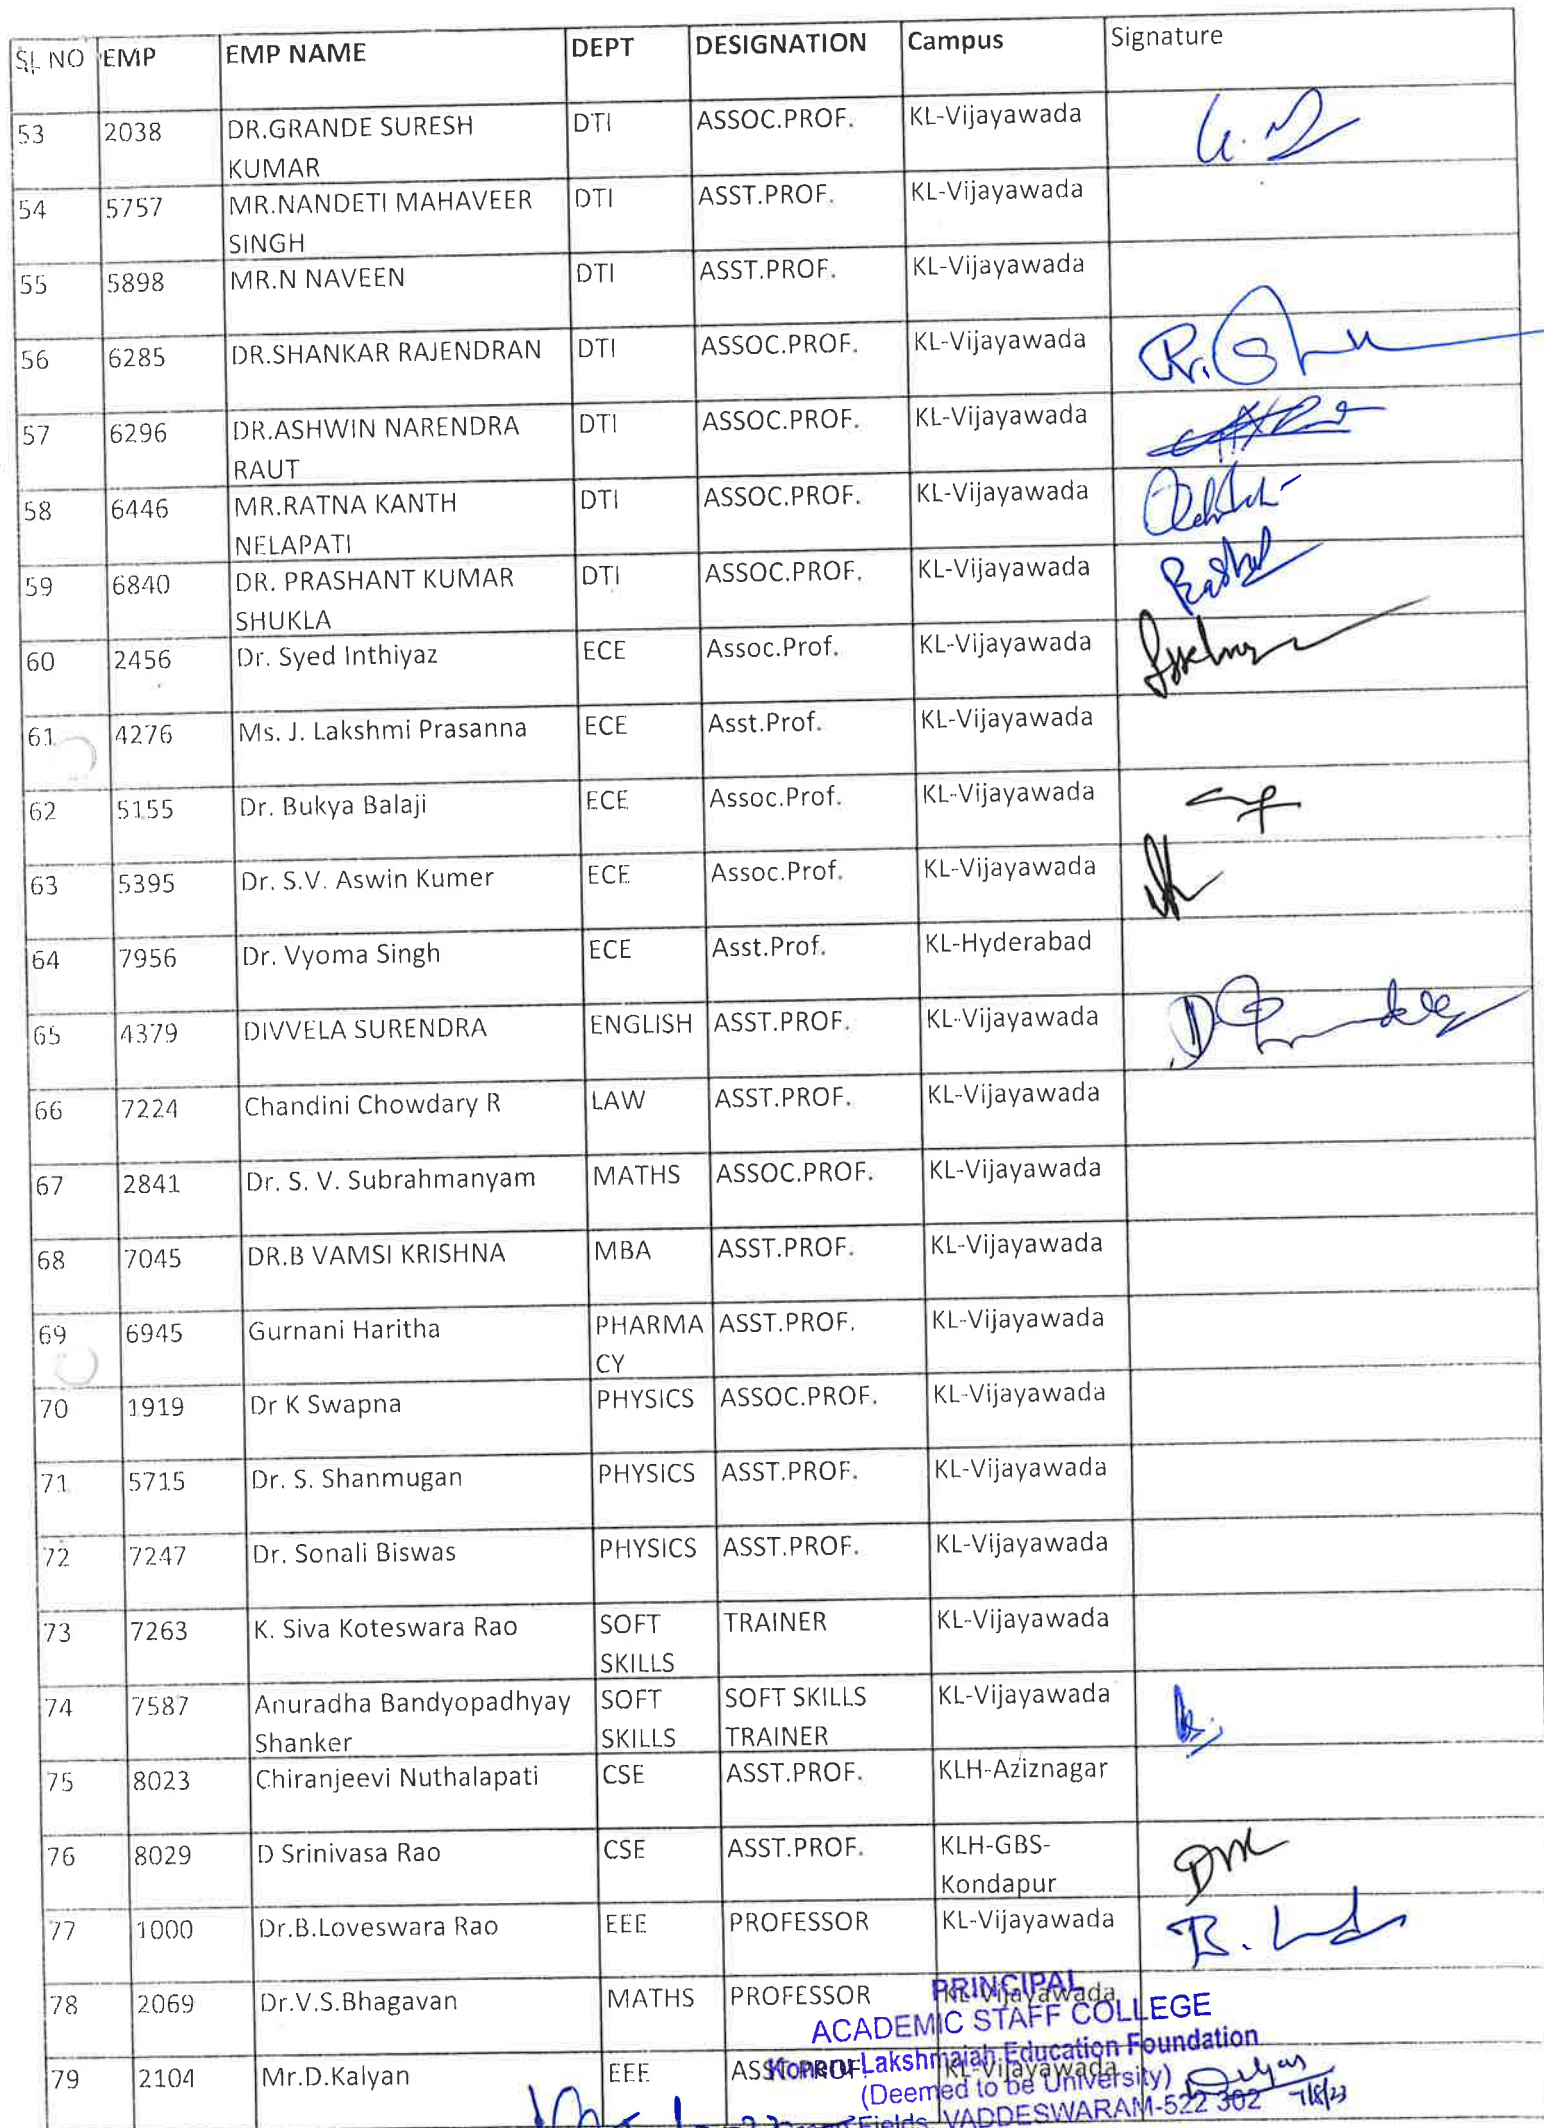 SL NO EMP EMP NAME DEPT DESIGNATION Campus Signature
53 2038 DR.GRANDE SURESH DTI ASSOC.PROF. KL-Vijayawada
KUMAR
54 5757 MR.NANDETI MAHAVEER DTI ASST.PROF. KL-Vijayawada
SINGH
55 5898 MR.N NAVEEN DTI ASST.PROF. KL-Vijayawada
56 6285 DR.SHANKAR RAJENDRAN DTI ASSOC.PROF. KL-Vijayawada
57 6296 DR.ASHWIN NARENDRA DTI ASSOC.PROF. KL-Vijayawada
RAUT
58 6446 MR.RATNA KANTH DTI ASSOC.PROF. KL-Vijayawada
NELAPATI
59 6840 DR. PRASHANT KUMAR DTI ASSOC.PROF. KL-Vijayawada
SHUKLA
60 2456 Dr. Syed Inthiyaz ECE Assoc.Prof. KL-Vijayawada
61 4276 Ms. J. Lakshmi Prasanna ECE Asst.Prof. KL-Vijayawada
62 5155 Dr. Bukya Balaji ECE Assoc.Prof. KL-Vijayawada
63 5395 Dr. S.V. Aswin Kumer ECE Assoc.Prof. KL-Vijayawada
64 7956 Dr. Vyoma Singh ECE Asst.Prof. KL-Hyderabad
65 4379 DIVVELA SURENDRA ENGLISH ASST.PROF. KL-Vijayawada
66 7224 Chandini Chowdary R LAW ASST.PROF. KL-Vijayawada
67 2841 Dr. S. V. Subrahmanyam MATHS ASSOC.PROF. KL-Vijayawada
68 7045 DR.B VAMSI KRISHNA MBA ASST.PROF. KL-Vijayawada
69 6945 Gurnani Haritha PHARMA ASST.PROF. KL-Vijayawada
CY
70 1919 Dr K Swapna PHYSICS ASSOC.PROF. KL-Vijayawada
71 5715 Dr. S. Shanmugan PHYSICS ASST.PROF. KL-Vijayawada
72 7247 Dr. Sonali Biswas PHYSICS ASST.PROF. KL-Vijayawada
73 7263 K. Siva Koteswara Rao SOFT TRAINER KL-Vijayawada
SKILLS
74 7587 Anuradha Bandyopadhyay SOFT SOFT SKILLS KL-Vijayawada
Shanker SKILLS TRAINER
75 8023 Chiranjeevi Nuthalapati CSE ASST.PROF. KLH-Aziznagar
76 8029 D Srinivasa Rao CSE ASST.PROF. KLH-GBS-
Kondapur
77 1000 Dr.B.Loveswara Rao EEE PROFESSOR KL-Vijayawada
78 2069 Dr.V.S.Bhagavan MATHS PROFESSOR KL-Vijayawada
PRINCIPAL
ACADEMIC STAFF COLLEGE
79 2104 Mr.D.Kalyan EEE ASST.PROF. KL-Vijayawada
Koneru Lakshmaiah Education Foundation
(Deemed to be University)
Fields, VADDESWARAM-522 302 7/8/23